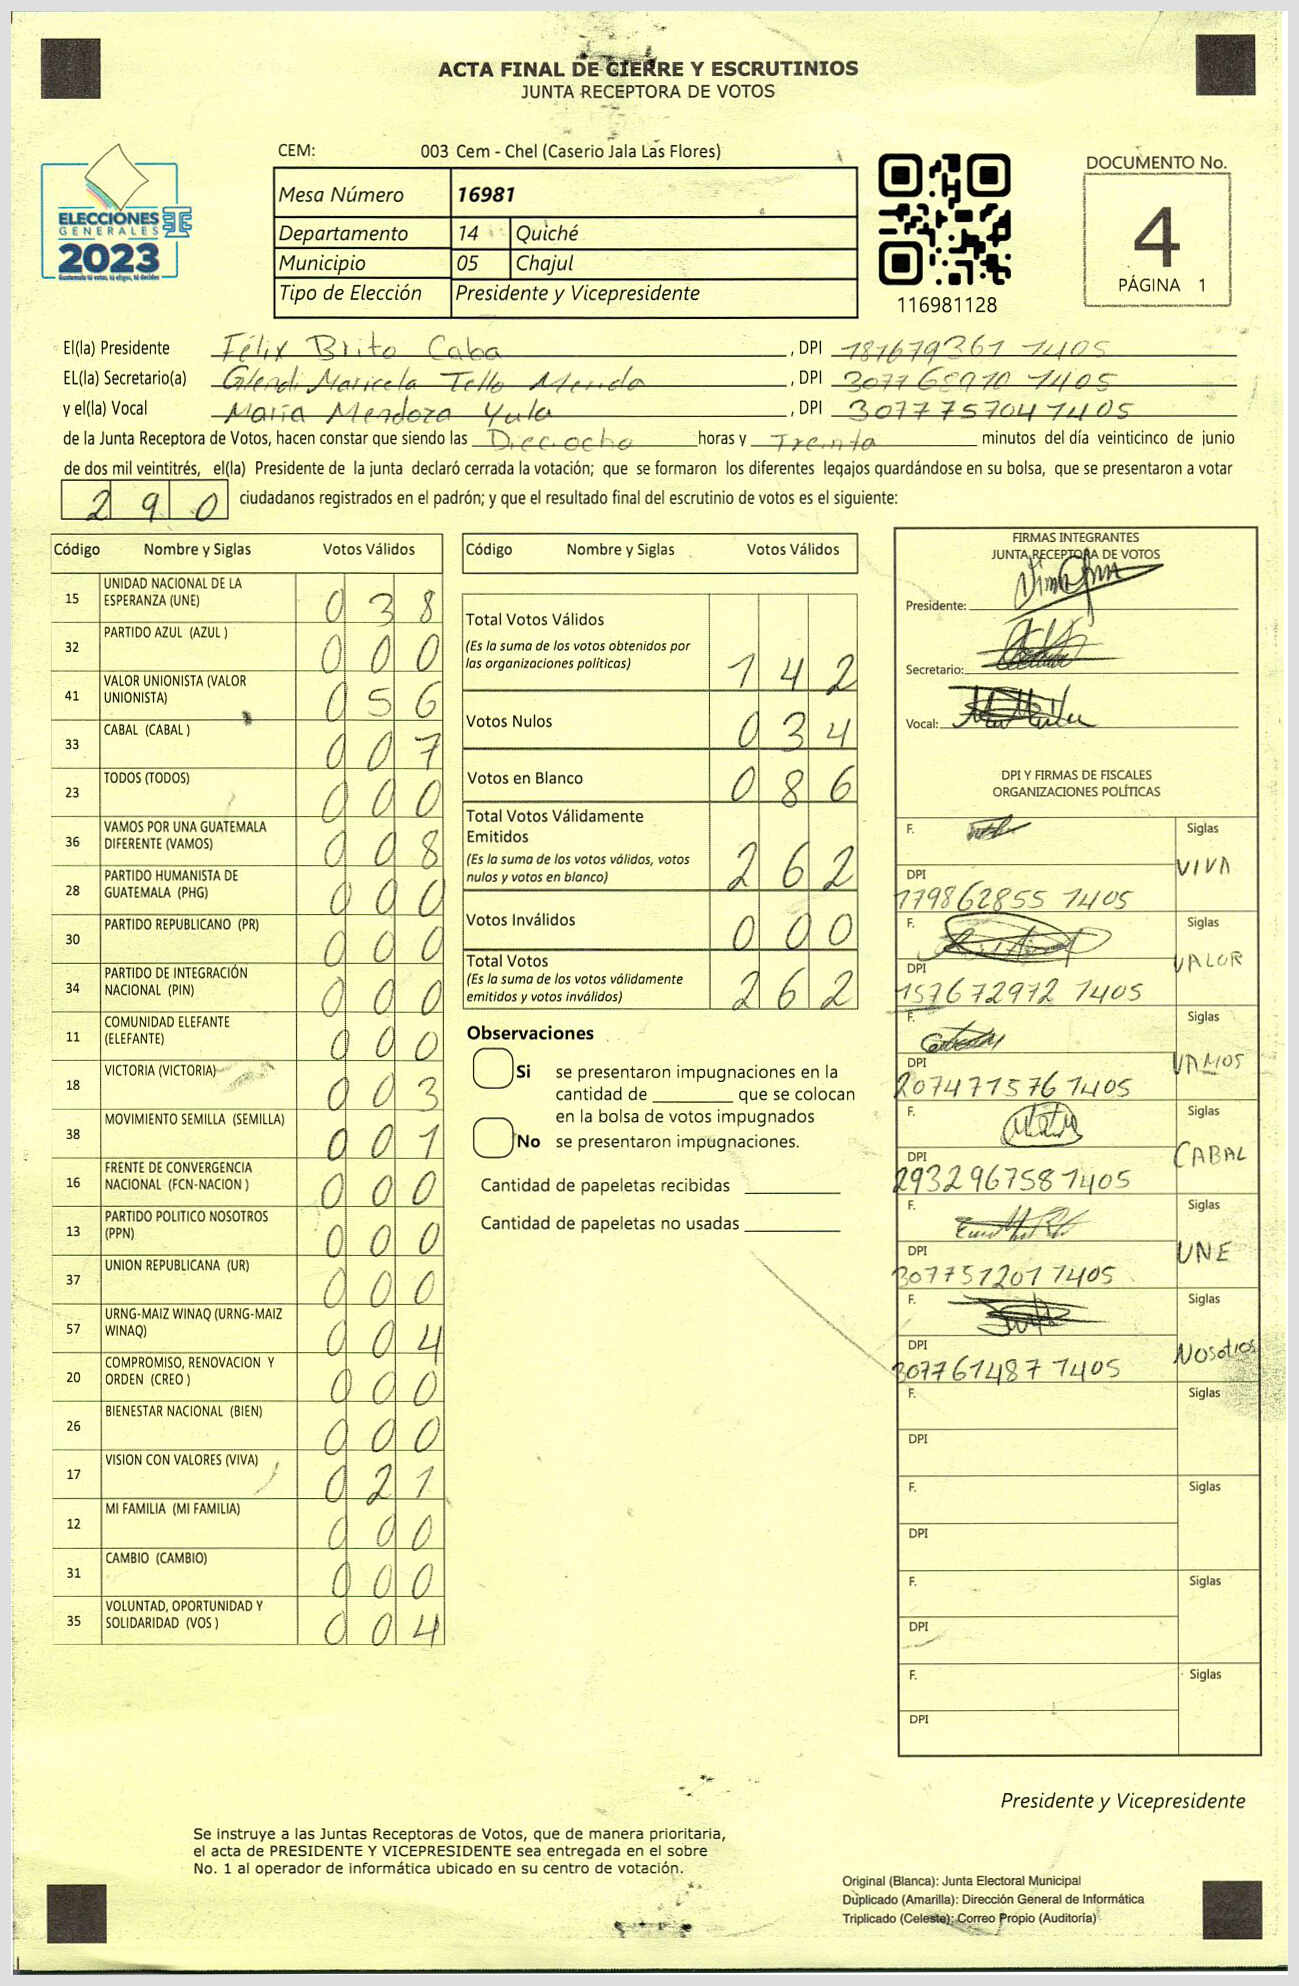 ACTA FINAL DE CIERRE Y ESCRUTINIOS
JUNTA RECEPTORA DE VOTOS
CEM: 003 Cem - Chel (Caserio Jala Las Flores)
ELECCIONES
GENERALES
2023
Guatemala tú votas, tú eliges, tú decides
Mesa Número 16981
Departamento 14 Quiché
Municipio 05 Chajul
Tipo de Elección Presidente y Vicepresidente
116981128
DOCUMENTO No.
4
PÁGINA 1
El(la) Presidente Félix Brito Caba , DPI 181679361 1405
EL(la) Secretario(a) Glendi Maricela Tello Merida , DPI 307768970 1405
y el(la) Vocal María Mendoza Yula , DPI 307775704 1405
de la Junta Receptora de Votos, hacen constar que siendo las Dieciocho horas y Treinta minutos del día veinticinco de junio
de dos mil veintitrés, el(la) Presidente de la junta declaró cerrada la votación; que se formaron los diferentes legajos quardándose en su bolsa, que se presentaron a votar
290 ciudadanos registrados en el padrón; y que el resultado final del escrutinio de votos es el siguiente:
Código Nombre y Siglas Votos Válidos
15 UNIDAD NACIONAL DE LA
ESPERANZA (UNE) 0 3 8
32 PARTIDO AZUL (AZUL ) 0 0 0
41 VALOR UNIONISTA (VALOR
UNIONISTA) 0 5 6
33 CABAL (CABAL ) 0 0 7
23 TODOS (TODOS) 0 0 0
36 VAMOS POR UNA GUATEMALA
DIFERENTE (VAMOS) 0 0 8
28 PARTIDO HUMANISTA DE
GUATEMALA (PHG) 0 0 0
30 PARTIDO REPUBLICANO (PR) 0 0 0
34 PARTIDO DE INTEGRACIÓN
NACIONAL (PIN) 0 0 0
11 COMUNIDAD ELEFANTE
(ELEFANTE) 0 0 0
18 VICTORIA (VICTORIA) 0 0 3
38 MOVIMIENTO SEMILLA (SEMILLA) 0 0 1
16 FRENTE DE CONVERGENCIA
NACIONAL (FCN-NACION ) 0 0 0
13 PARTIDO POLITICO NOSOTROS
(PPN) 0 0 0
37 UNION REPUBLICANA (UR) 0 0 0
57 URNG-MAIZ WINAQ (URNG-MAIZ
WINAQ) 0 0 4
20 COMPROMISO, RENOVACION Y
ORDEN (CREO ) 0 0 0
26 BIENESTAR NACIONAL (BIEN) 0 0 0
17 VISION CON VALORES (VIVA) 0 2 1
12 MI FAMILIA (MI FAMILIA) 0 0 0
31 CAMBIO (CAMBIO) 0 0 0
35 VOLUNTAD, OPORTUNIDAD Y
SOLIDARIDAD (VOS ) 0 0 4
Código Nombre y Siglas Votos Válidos
Total Votos Válidos
(Es la suma de los votos obtenidos por
las organizaciones políticas) 1 4 2
Votos Nulos 0 3 4
Votos en Blanco 0 8 6
Total Votos Válidamente
Emitidos
(Es la suma de los votos válidos, votos
nulos y votos en blanco) 2 6 2
Votos Inválidos 0 0 0
Total Votos
(Es la suma de los votos válidamente
emitidos y votos inválidos) 2 6 2
Observaciones
Si se presentaron impugnaciones en la
cantidad de ________ que se colocan
en la bolsa de votos impugnados
No se presentaron impugnaciones.
Cantidad de papeletas recibidas
Cantidad de papeletas no usadas
FIRMAS INTEGRANTES
JUNTA RECEPTORA DE VOTOS
Presidente:
Secretario:
Vocal:
DPI Y FIRMAS DE FISCALES
ORGANIZACIONES POLÍTICAS
F. Siglas
VIVA
DPI
179862855 1405
F. Siglas
VALOR
DPI
157672972 1405
F. Siglas
VAMOS
DPI
207471576 1405
F. Siglas
CABAL
DPI
293296758 1405
F. Siglas
UNE
DPI
307751201 1405
F. Siglas
Nosotros
DPI
307761487 1405
F. Siglas
DPI
F. Siglas
DPI
F. Siglas
DPI
F. Siglas
DPI
Presidente y Vicepresidente
Se instruye a las Juntas Receptoras de Votos, que de manera prioritaria,
el acta de PRESIDENTE Y VICEPRESIDENTE sea entregada en el sobre
No. 1 al operador de informática ubicado en su centro de votación.
Original (Blanca): Junta Electoral Municipal
Duplicado (Amarilla): Dirección General de Informática
Triplicado (Celeste): Correo Propio (Auditoría)